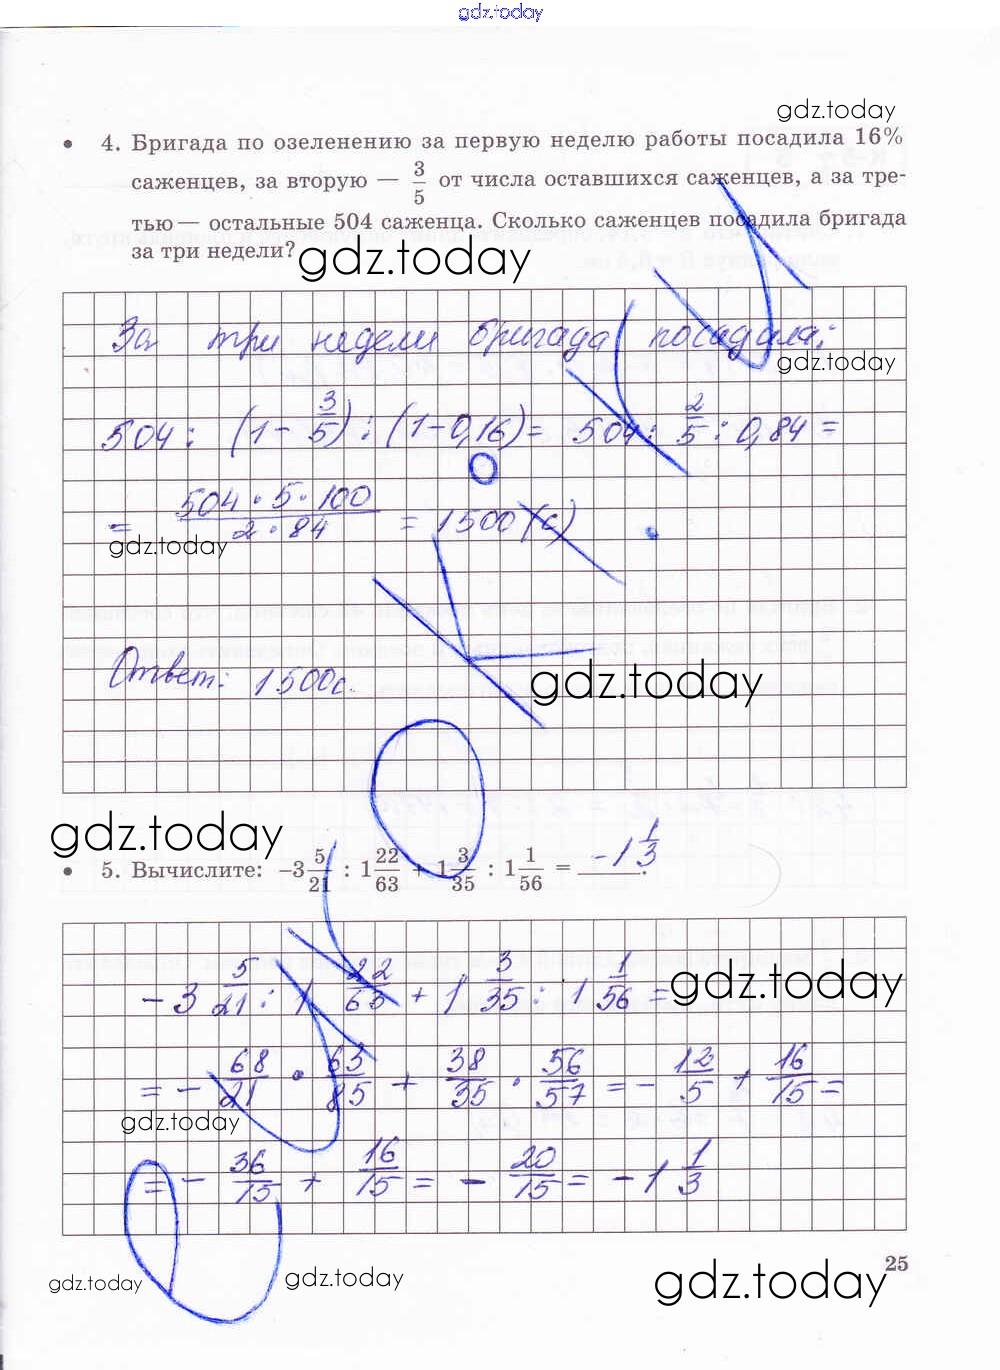 gdz.today
gdz.today
• 4. Бригада по озеленению за первую неделю работы посадила 16%
саженцев, за вторую — 3/5 от числа оставшихся саженцев, а за тре-
тью — остальные 504 саженца. Сколько саженцев посадила бригада
за три недели?
gdz.today
За три недели бригада посадила:
gdz.today
504 : (1 - 3/5) : (1 - 0,16) = 504 : 2/5 : 0,84 =
= 504 · 5 · 100 / 2 · 84 = 1500 (с)
gdz.today
Ответ: 1500с.
gdz.today
gdz.today
• 5. Вычислите: -3 5/21 : 1 22/63 + 1 3/35 : 1 1/56 = -1 1/3.
-3 5/21 : 1 22/63 + 1 3/35 : 1 1/56 =
gdz.today
= - 68/21 · 63/85 + 38/35 · 56/57 = - 12/5 + 16/15 =
gdz.today
= - 36/15 + 16/15 = - 20/15 = -1 1/3
25
gdz.today
gdz.today
gdz.today